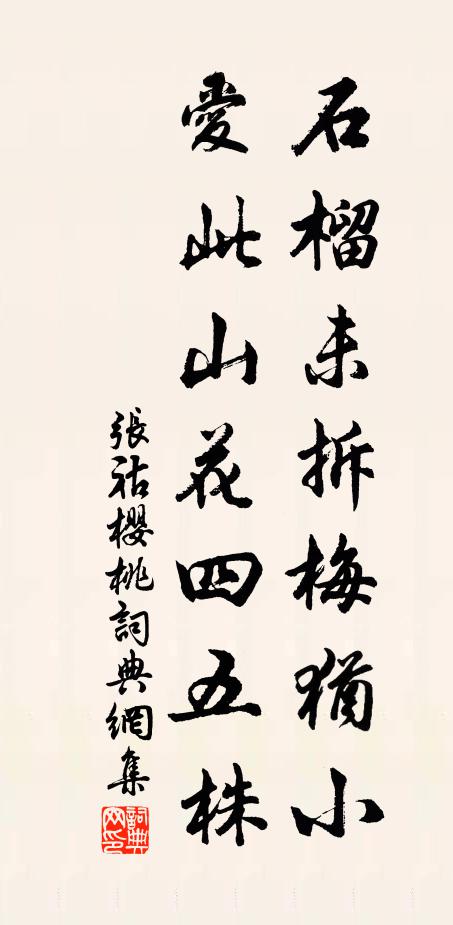 石榴未拆梅猶小
愛此山花四五株
張祜櫻桃詞典網集
詞典網印